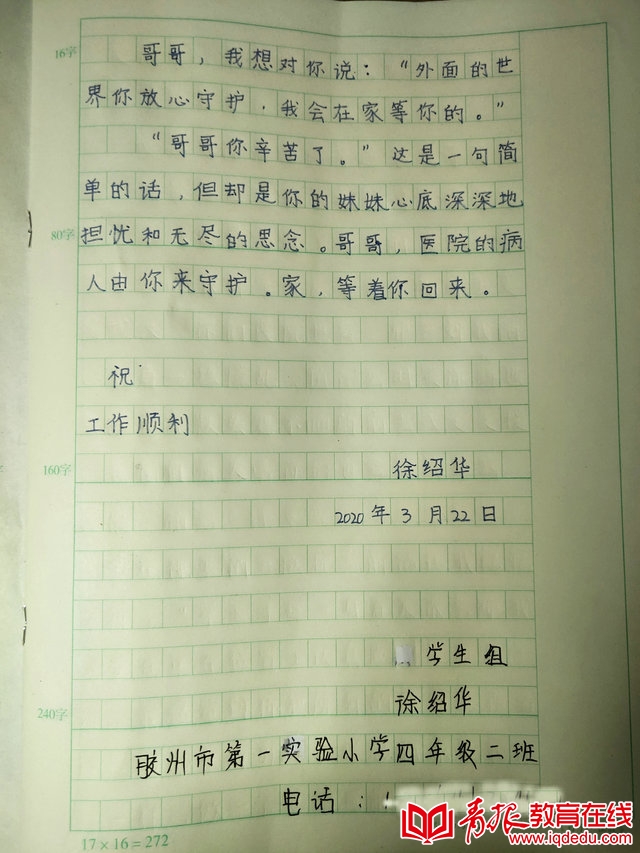 16字
哥哥，我想对你说：“外面的世
界你放心守护，我会在家等你的。”
“哥哥你辛苦了。”这是一句简
单的话，但却是你的妹妹心底深深地
80字
担忧和无尽的思念。哥哥，医院的病
人由你来守护。家，等着你回来。
祝
工作顺利
160字
徐绍华
2020年3月22日
学生组
240字
徐绍华
胶州市第一实验小学四年级二班
电话：
17×16=272
青报教育在线
www.iqdedu.com